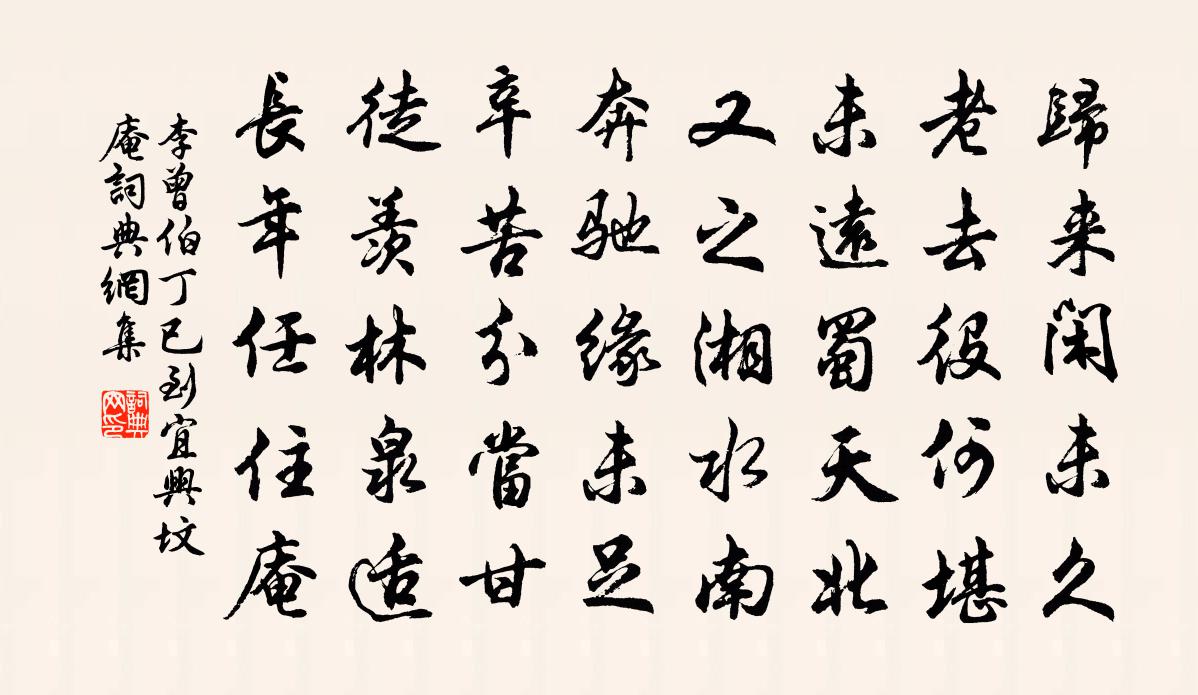 歸来閑未久
老去役何堪
未遠蜀天北
又之湘水南
奔馳緣未足
辛苦分當甘
徒羨林泉适
長年任住庵
李曾伯丁巳到宜興坟
庵詞典網集
詞典
网印